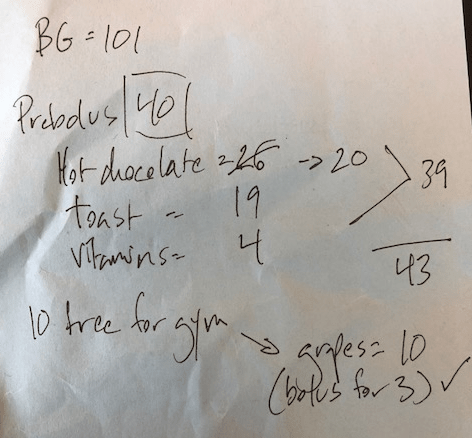 BG = 101
Prebolus 40
Hot chocolate = 26 → 20
39
toast = 19
vitamins = 4
43
10 free for gym
grapes = 10
(bolus for 3) ✓